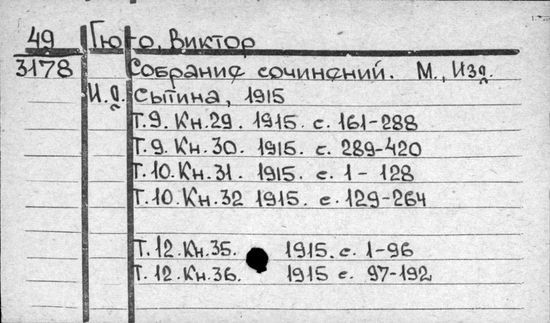 49 Гюго, Виктор
3178 Собрание сочинений. М., Изд.
И.Д. Сытина, 1915
Т.9. Кн.29. 1915. с. 161-288
Т.9. Кн.30. 1915. с. 289-420
Т.10. Кн.31. 1915. с. 1-128
Т.10. Кн.32 1915. с. 129-264
Т.12. Кн.35. 1915. с. 1-96
Т.12. Кн.36. 1915 с. 97-192